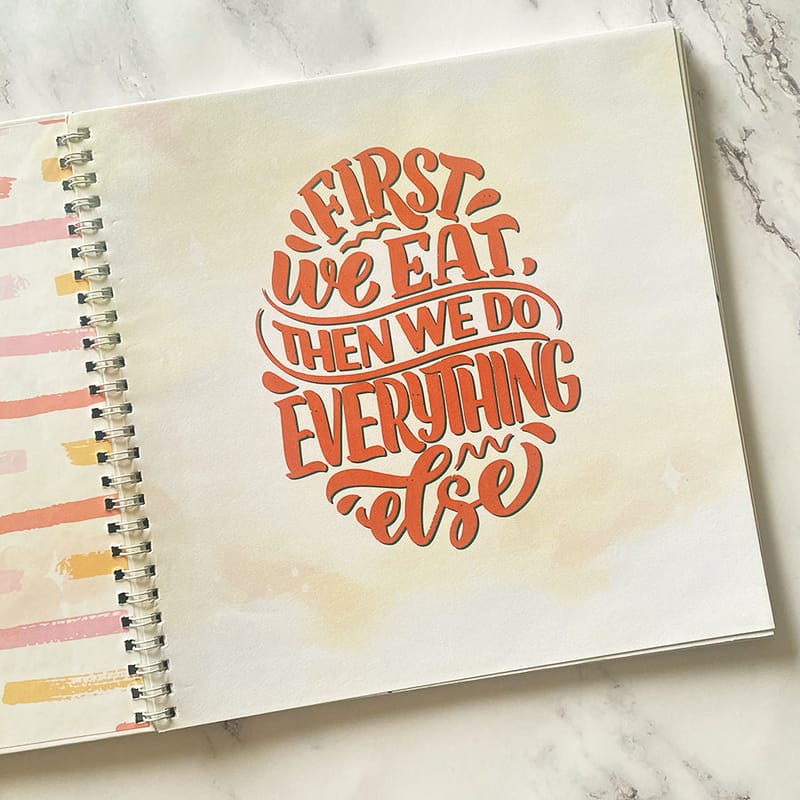 FIRST
we EAT,
THEN WE DO
EVERYTHING
else